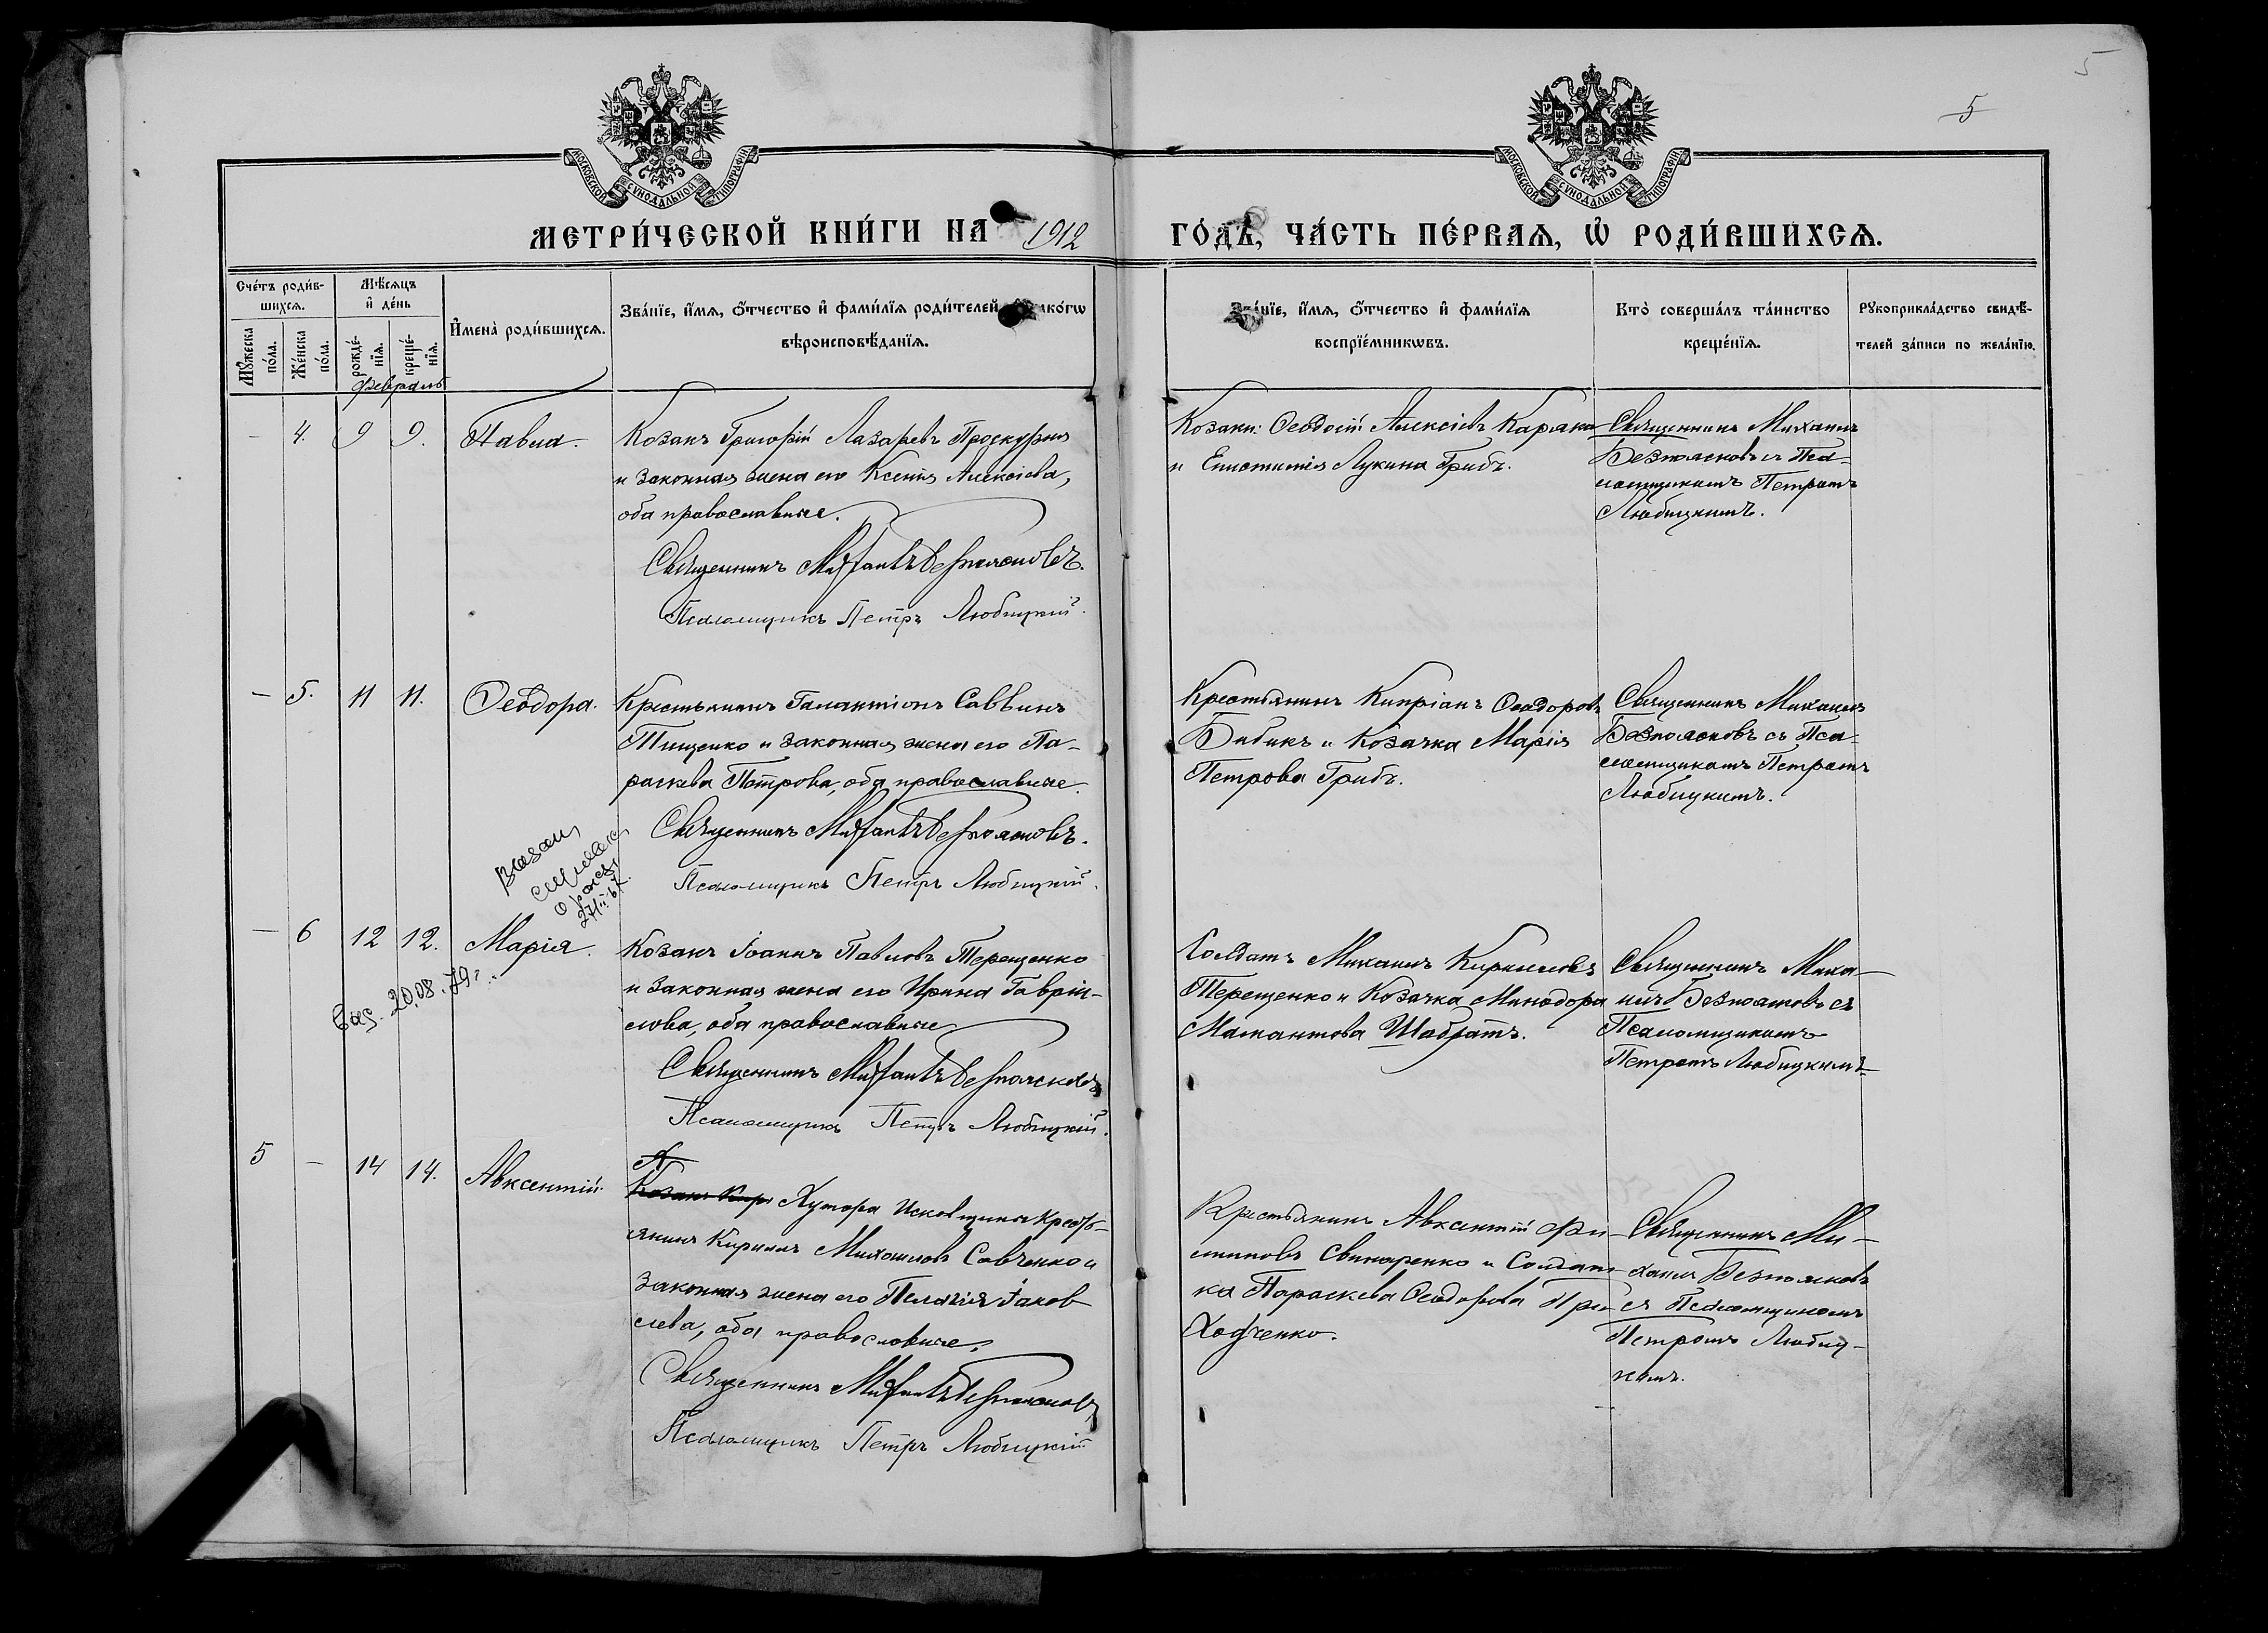 5
5
МОСКОВСКОЙ СѴНОДАЛЬНОЙ ТИПОГРАФІИ
МОСКОВСКОЙ СѴНОДАЛЬНОЙ ТИПОГРАФІИ
МЕТРИ́ЧЕСКОЙ КНИ́ГИ НА 1912
ГО́ДЪ, ЧА́СТЬ ПЕ́РВАѦ, Ѡ҆ РОДИ́ВШИХСѦ.
Сче́тъ роди́в-
шихсѧ.
Мѣ́сѧцъ
и҆ де́нь
Мꙋ́жеска
по́ла.
Же́нска
по́ла.
рожде́-
нїѧ.
креще́-
нїѧ.
И҆мена̀ роди́вшихсѧ.
Зва́нїе, и҆́мѧ, ѻ҆́тчество и҆ фами́лїѧ роди́телей
вѣроисповѣ́данїѧ.
Зва́нїе, и҆́мѧ, ѻ҆́тчество и҆ фами́лїѧ
воспрїе́мникѡвъ.
Кто̀ соверша́лъ та́инство
креще́нїѧ.
Рꙋкоприкла́дство свидѣ́-
телей за́писи по жела́нїю.
Февраль
— 4. 9 9. Павла.
Козакъ Григорій Лазаревъ Проскурня
и законная жена его Ксенія Алексіева,
оба православные.
Священникъ Михаилъ Безпоясковъ.
Псаломщикъ Петръ Любицкій.
Козаки: Ѳеодосій Алексіевъ Каряка
и Епистимія Лукина Грибъ.
Священникъ Михаилъ
Безпоясковъ съ Пса-
ломщикомъ Петромъ
Любицкимъ.
— 5. 11 11. Ѳеодора.
Крестьянинъ Галактіонъ Саввинъ
Тищенко и законная жена его Па-
раскева Петрова, оба православные.
Священникъ Михаилъ Безпоясковъ.
Псаломщикъ Петръ Любицкій.
Крестьянинъ Кипріанъ Ѳеодоровъ
Бибикъ и Козачка Марія
Петрова Грибъ.
Священникъ Михаилъ
Безпоясковъ съ Пса-
ломщикомъ Петромъ
Любицкимъ.
— 6 12 12. Марія.
20.08.79г.
Козакъ Іоаннъ Павловъ Терещенко
и законная жена его Ирина Гавріи-
лова, оба православные
Священникъ Михаилъ Безпоясковъ
Псаломщикъ Петръ Любицкій.
Солдатъ Михаилъ Кирилловъ
Терещенко и Козачка Минодора
Мамантова Шабратъ.
Священникъ Миха-
илъ Безпоясковъ съ
Псаломщикомъ
Петромъ Любицкимъ
5 — 14 14. Авксентій.
Козакъ Кир Хутора Исковщины Кресть-
янинъ Кириллъ Михаиловъ Савченко и
законная жена его Пелагія Іаков
лева, оба православные.
Священникъ Михаилъ Безпоясковъ
Псаломщикъ Петръ Любицкій
Крестьянинъ Авксентій Фи-
липповъ Свинаренко и Солдат-
ка Параскева Ѳеодорова При
Ходченко.
Священникъ Ми-
хаилъ Безпоясковъ
съ Псаломщикомъ
Петромъ Любиц-
кимъ.